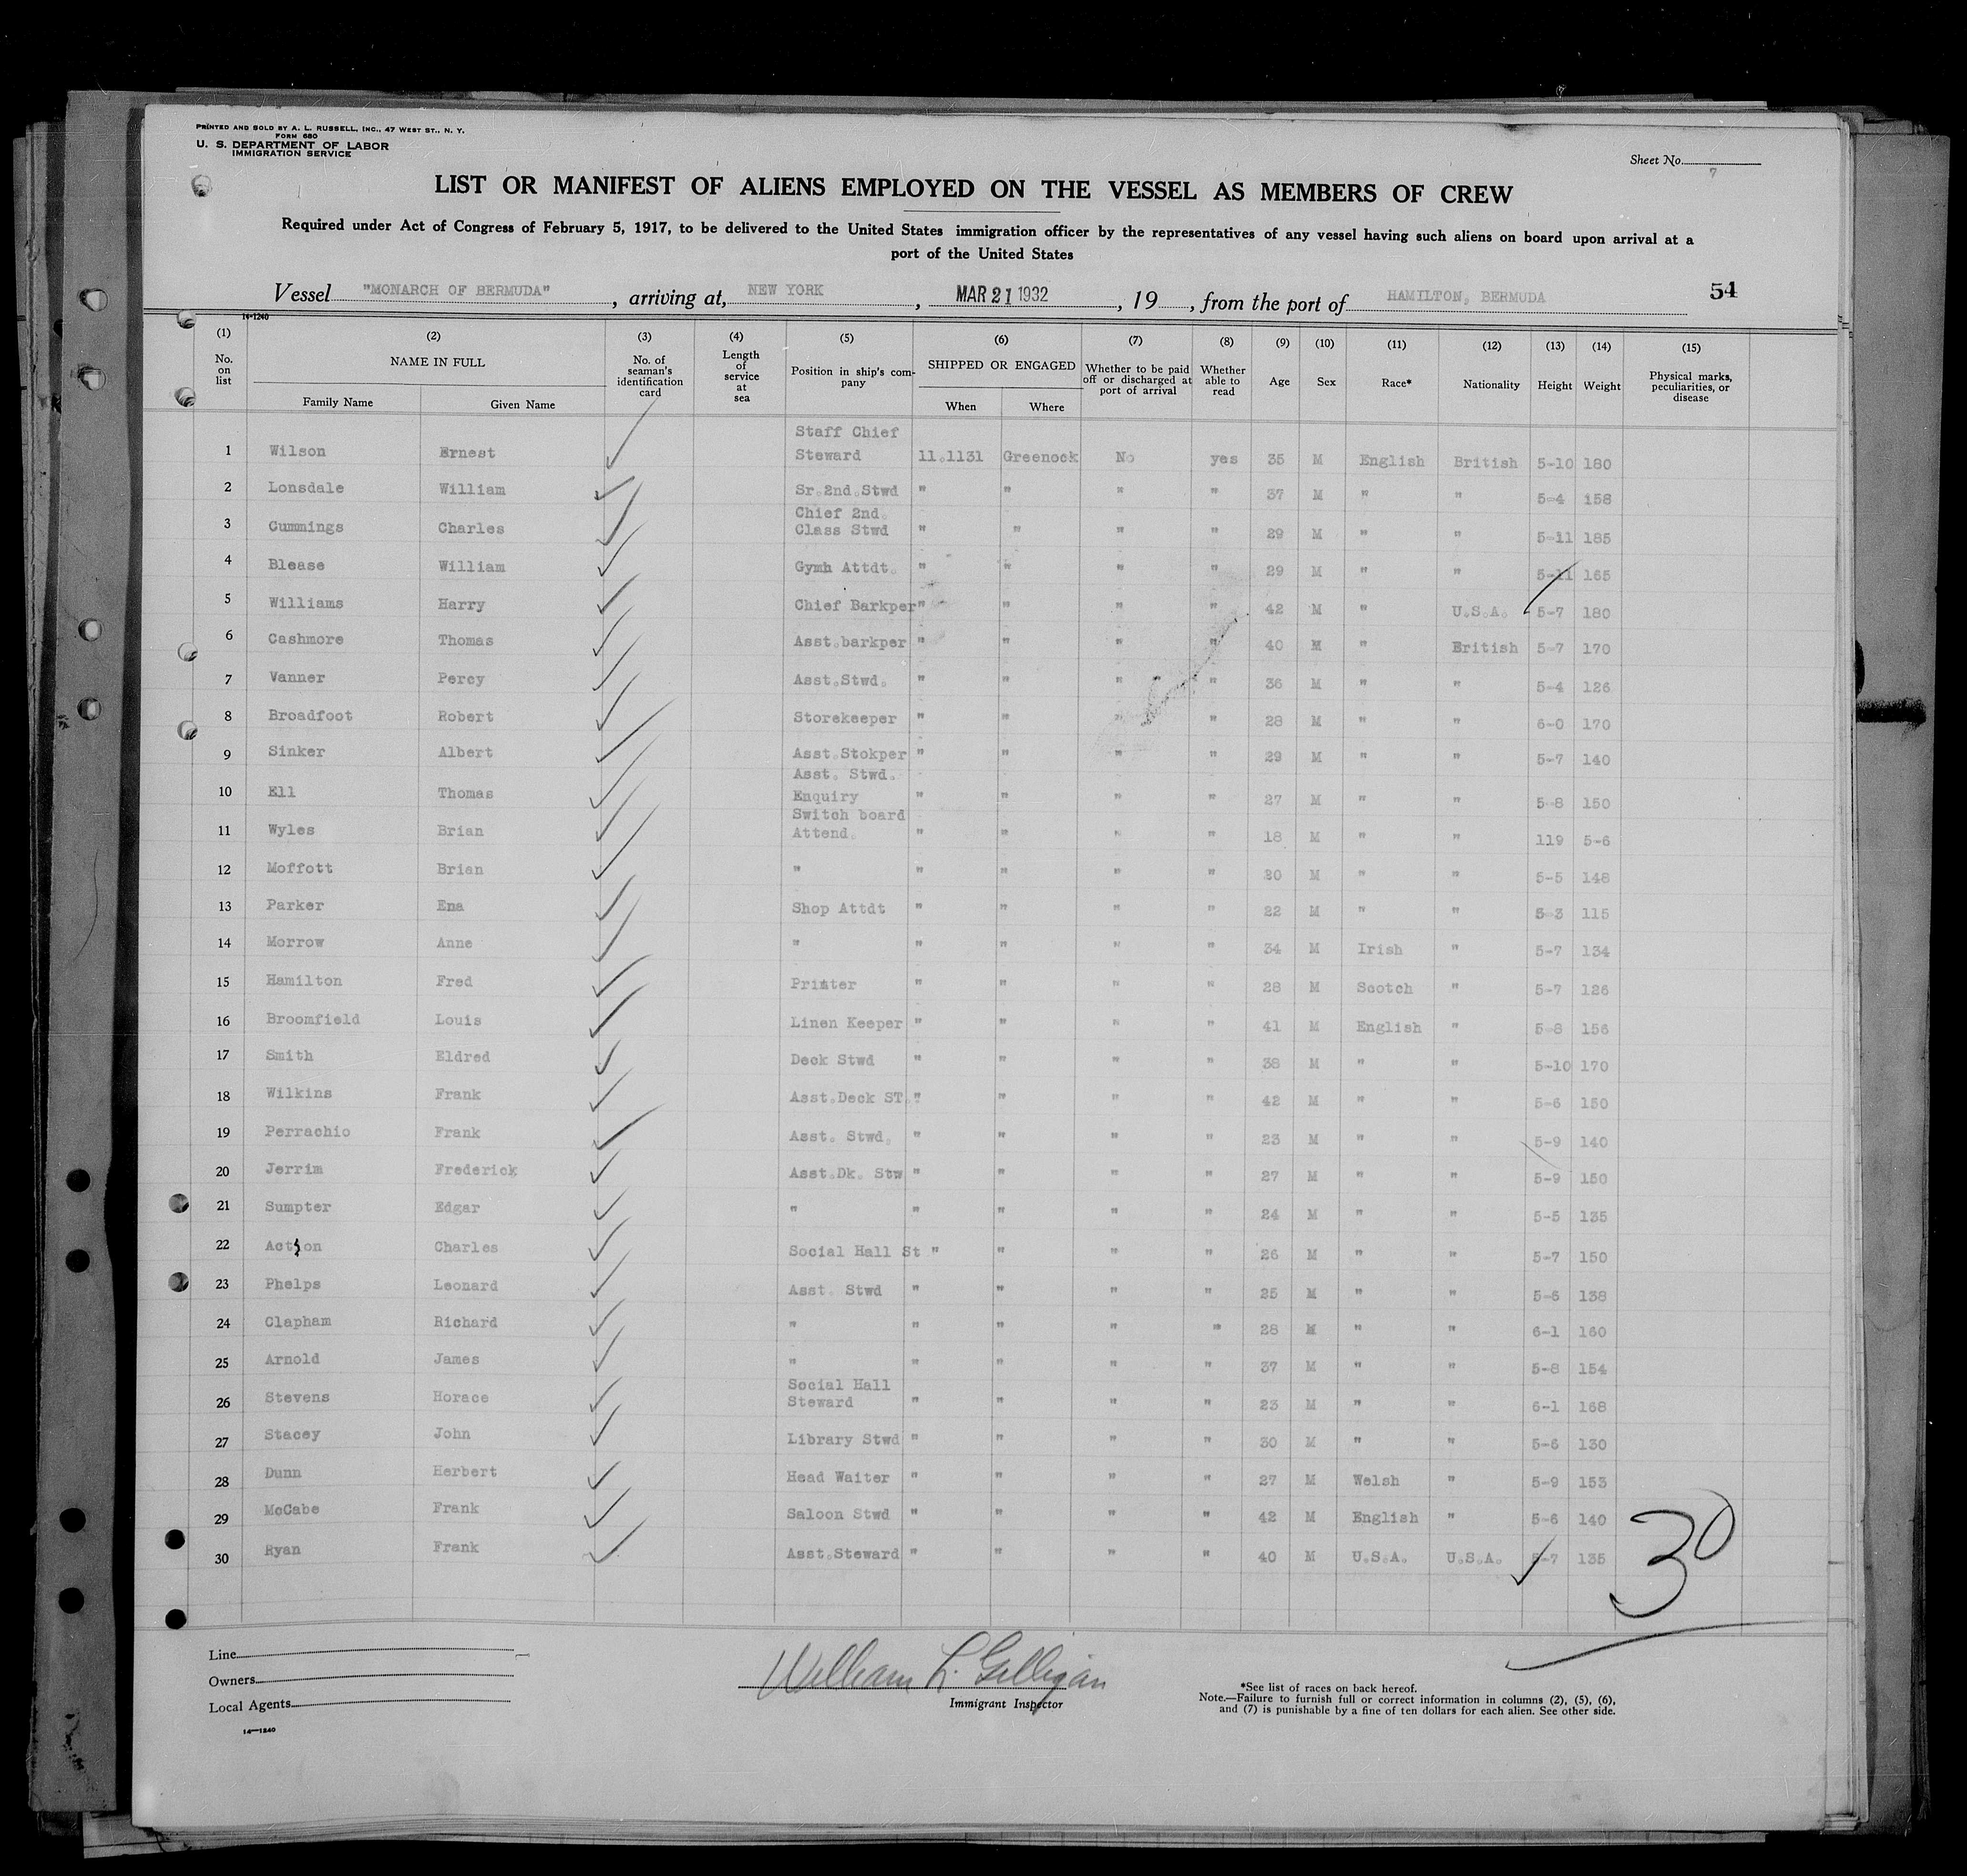 PRINTED AND SOLD BY A. L. RUSSELL, INC., 47 WEST ST., N. Y.
FORM 680
U. S. DEPARTMENT OF LABOR
IMMIGRATION SERVICE
Sheet No. 7
LIST OR MANIFEST OF ALIENS EMPLOYED ON THE VESSEL AS MEMBERS OF CREW
Required under Act of Congress of February 5, 1917, to be delivered to the United States immigration officer by the representatives of any vessel having such aliens on board upon arrival at a
port of the United States
Vessel "MONARCH OF BERMUDA", arriving at, NEW YORK, MAR 21 1932, 19, from the port of HAMILTON, BERMUDA 54
14-1240
(1) (2) (3) (4) (5) (6) (7) (8) (9) (10) (11) (12) (13) (14) (15)
No. on list NAME IN FULL Family Name Given Name No. of seaman's identification card Length of service at sea Position in ship's company SHIPPED OR ENGAGED When Where Whether to be paid off or discharged at port of arrival Whether able to read Age Sex Race* Nationality Height Weight Physical marks, peculiarities, or disease
1 Wilson Ernest Staff Chief Steward 11.1131 Greenock No yes 35 M English British 5-10 180
2 Lonsdale William Sr.2nd.Stwd " " " " 37 M " " 5-4 158
3 Cummings Charles Chief 2nd. Class Stwd " " " " 29 M " " 5-11 185
4 Blease William Gymh Attdt. " " " " 29 M " " 5-11 165
5 Williams Harry Chief Barkper " " " " 42 M " U.S.A. 5-7 180
6 Cashmore Thomas Asst.barkper " " " " 40 M " British 5-7 170
7 Vanner Percy Asst.Stwd. " " " " 36 M " " 5-4 126
8 Broadfoot Robert Storekeeper " " " " 28 M " " 6-0 170
9 Sinker Albert Asst.Stokper " " " " 29 M " " 5-7 140
10 Ell Thomas Asst. Stwd. Enquiry " " " " 27 M " " 5-8 150
11 Wyles Brian Switch board Attend. " " " " 18 M " " 119 5-6
12 Moffott Brian " " " " " 20 M " " 5-5 148
13 Parker Ena Shop Attdt " " " " 22 M " " 5-3 115
14 Morrow Anne " " " " " 34 M Irish " 5-7 134
15 Hamilton Fred Printer " " " " 28 M Scotch " 5-7 126
16 Broomfield Louis Linen Keeper " " " " 41 M English " 5-8 156
17 Smith Eldred Deck Stwd " " " " 38 M " " 5-10 170
18 Wilkins Frank Asst.Deck ST. " " " " 42 M " " 5-6 150
19 Perrachio Frank Asst. Stwd. " " " " 23 M " " 5-9 140
20 Jerrim Frederick Asst.Dk. Stw " " " " 27 M " " 5-9 150
21 Sumpter Edgar " " " " " 24 M " " 5-5 135
22 Acton Charles Social Hall St " " " " 26 M " " 5-7 150
23 Phelps Leonard Asst. Stwd " " " " 25 M " " 5-6 138
24 Clapham Richard " " " " " 28 M " " 6-1 160
25 Arnold James " " " " " 37 M " " 5-8 154
26 Stevens Horace Social Hall Steward " " " " 23 M " " 6-1 168
27 Stacey John Library Stwd " " " " 30 M " " 5-6 130
28 Dunn Herbert Head Waiter " " " " 27 M Welsh " 5-9 153
29 McCabe Frank Saloon Stwd " " " " 42 M English " 5-6 140
30 Ryan Frank Asst.Steward " " " " 40 M U.S.A. U.S.A. 5-7 135
30
Line
Owners
Local Agents
14-1240
William L. Gilligan
Immigrant Inspector
*See list of races on back hereof.
Note.—Failure to furnish full or correct information in columns (2), (5), (6),
and (7) is punishable by a fine of ten dollars for each alien. See other side.